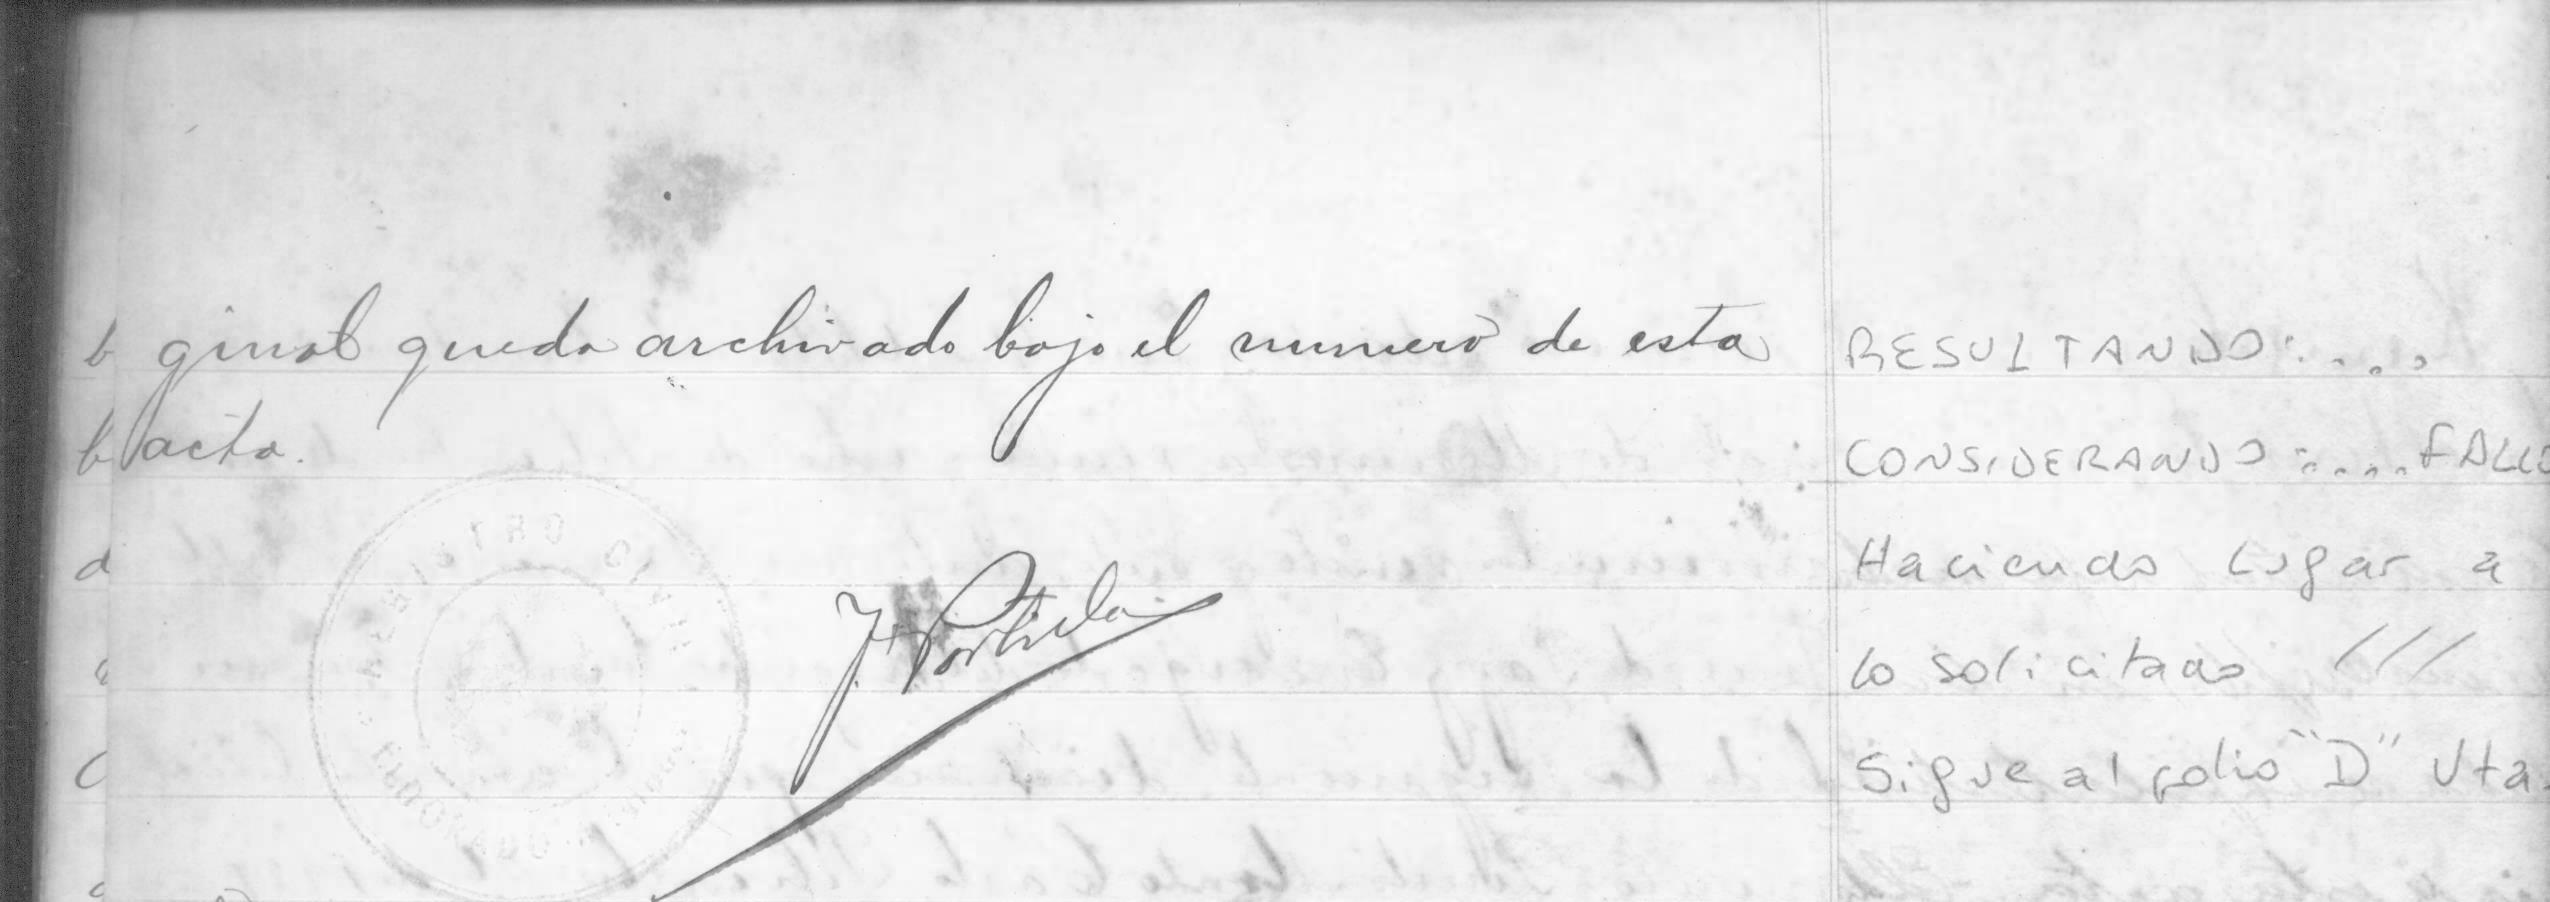 ginal queda archivado bajo el numero de esta
acta.
REGISTRO CIVIL
ELDORADO
J. Portela
RESULTANDO:....
CONSIDERANDO:....FALLO
Haciendo lugar a
lo solicitado ///
Sigue al folio "D" Vta.